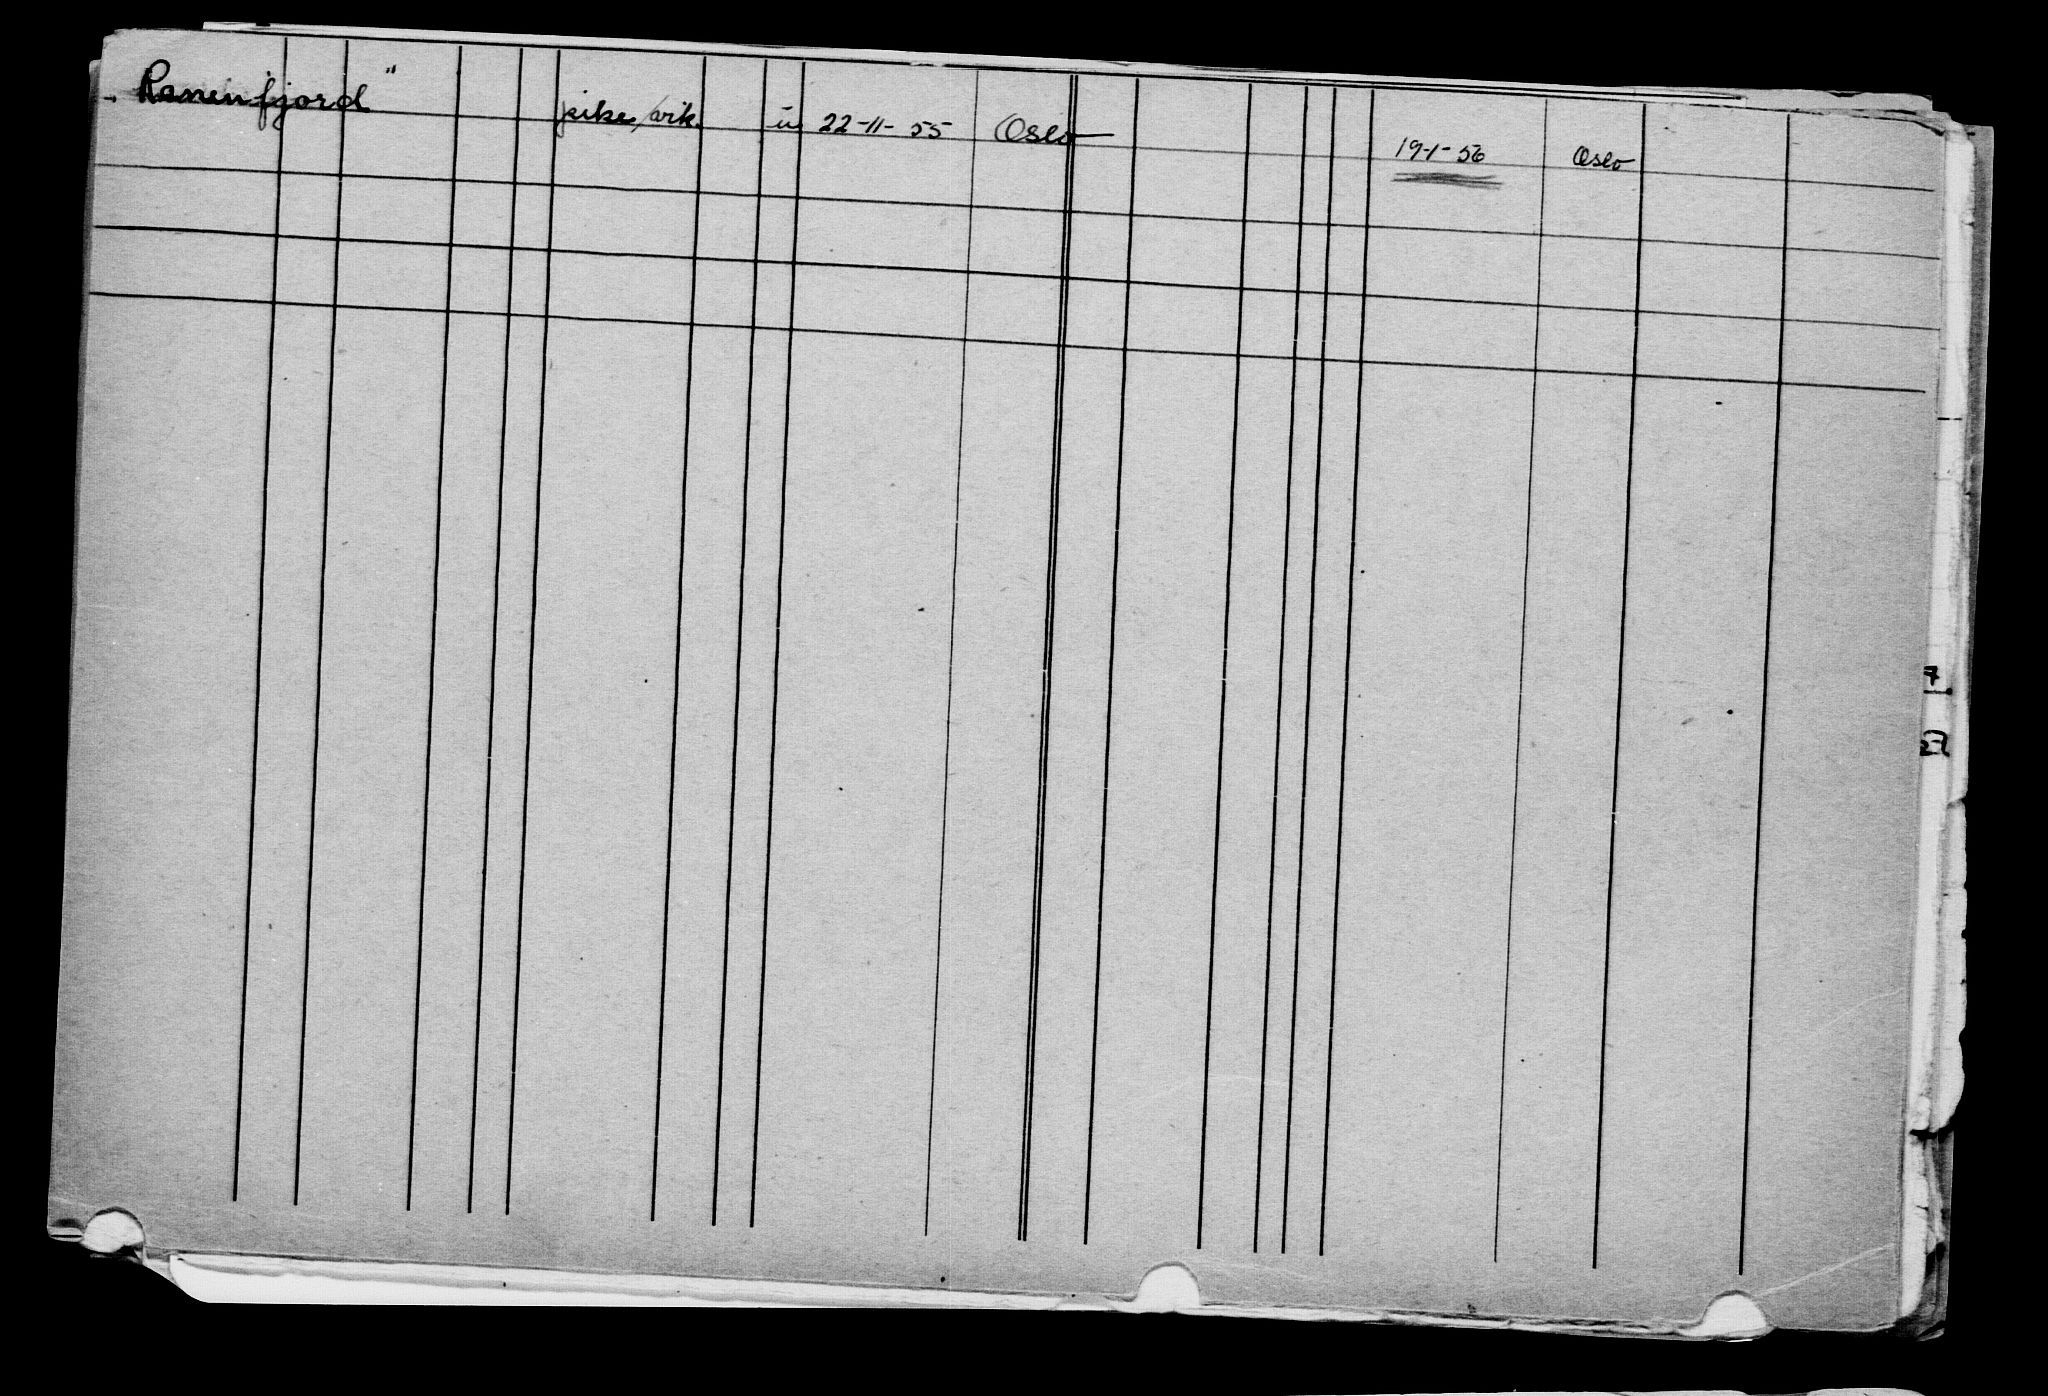 „Ranenfjord" pike/vik. u 22-11-55 Oslo 19-1-56 Oslo
7